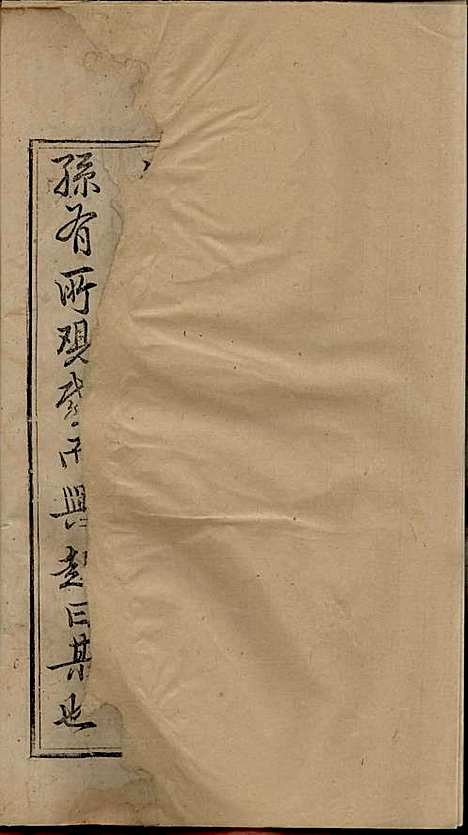 孫有所觀感而興起曰某也